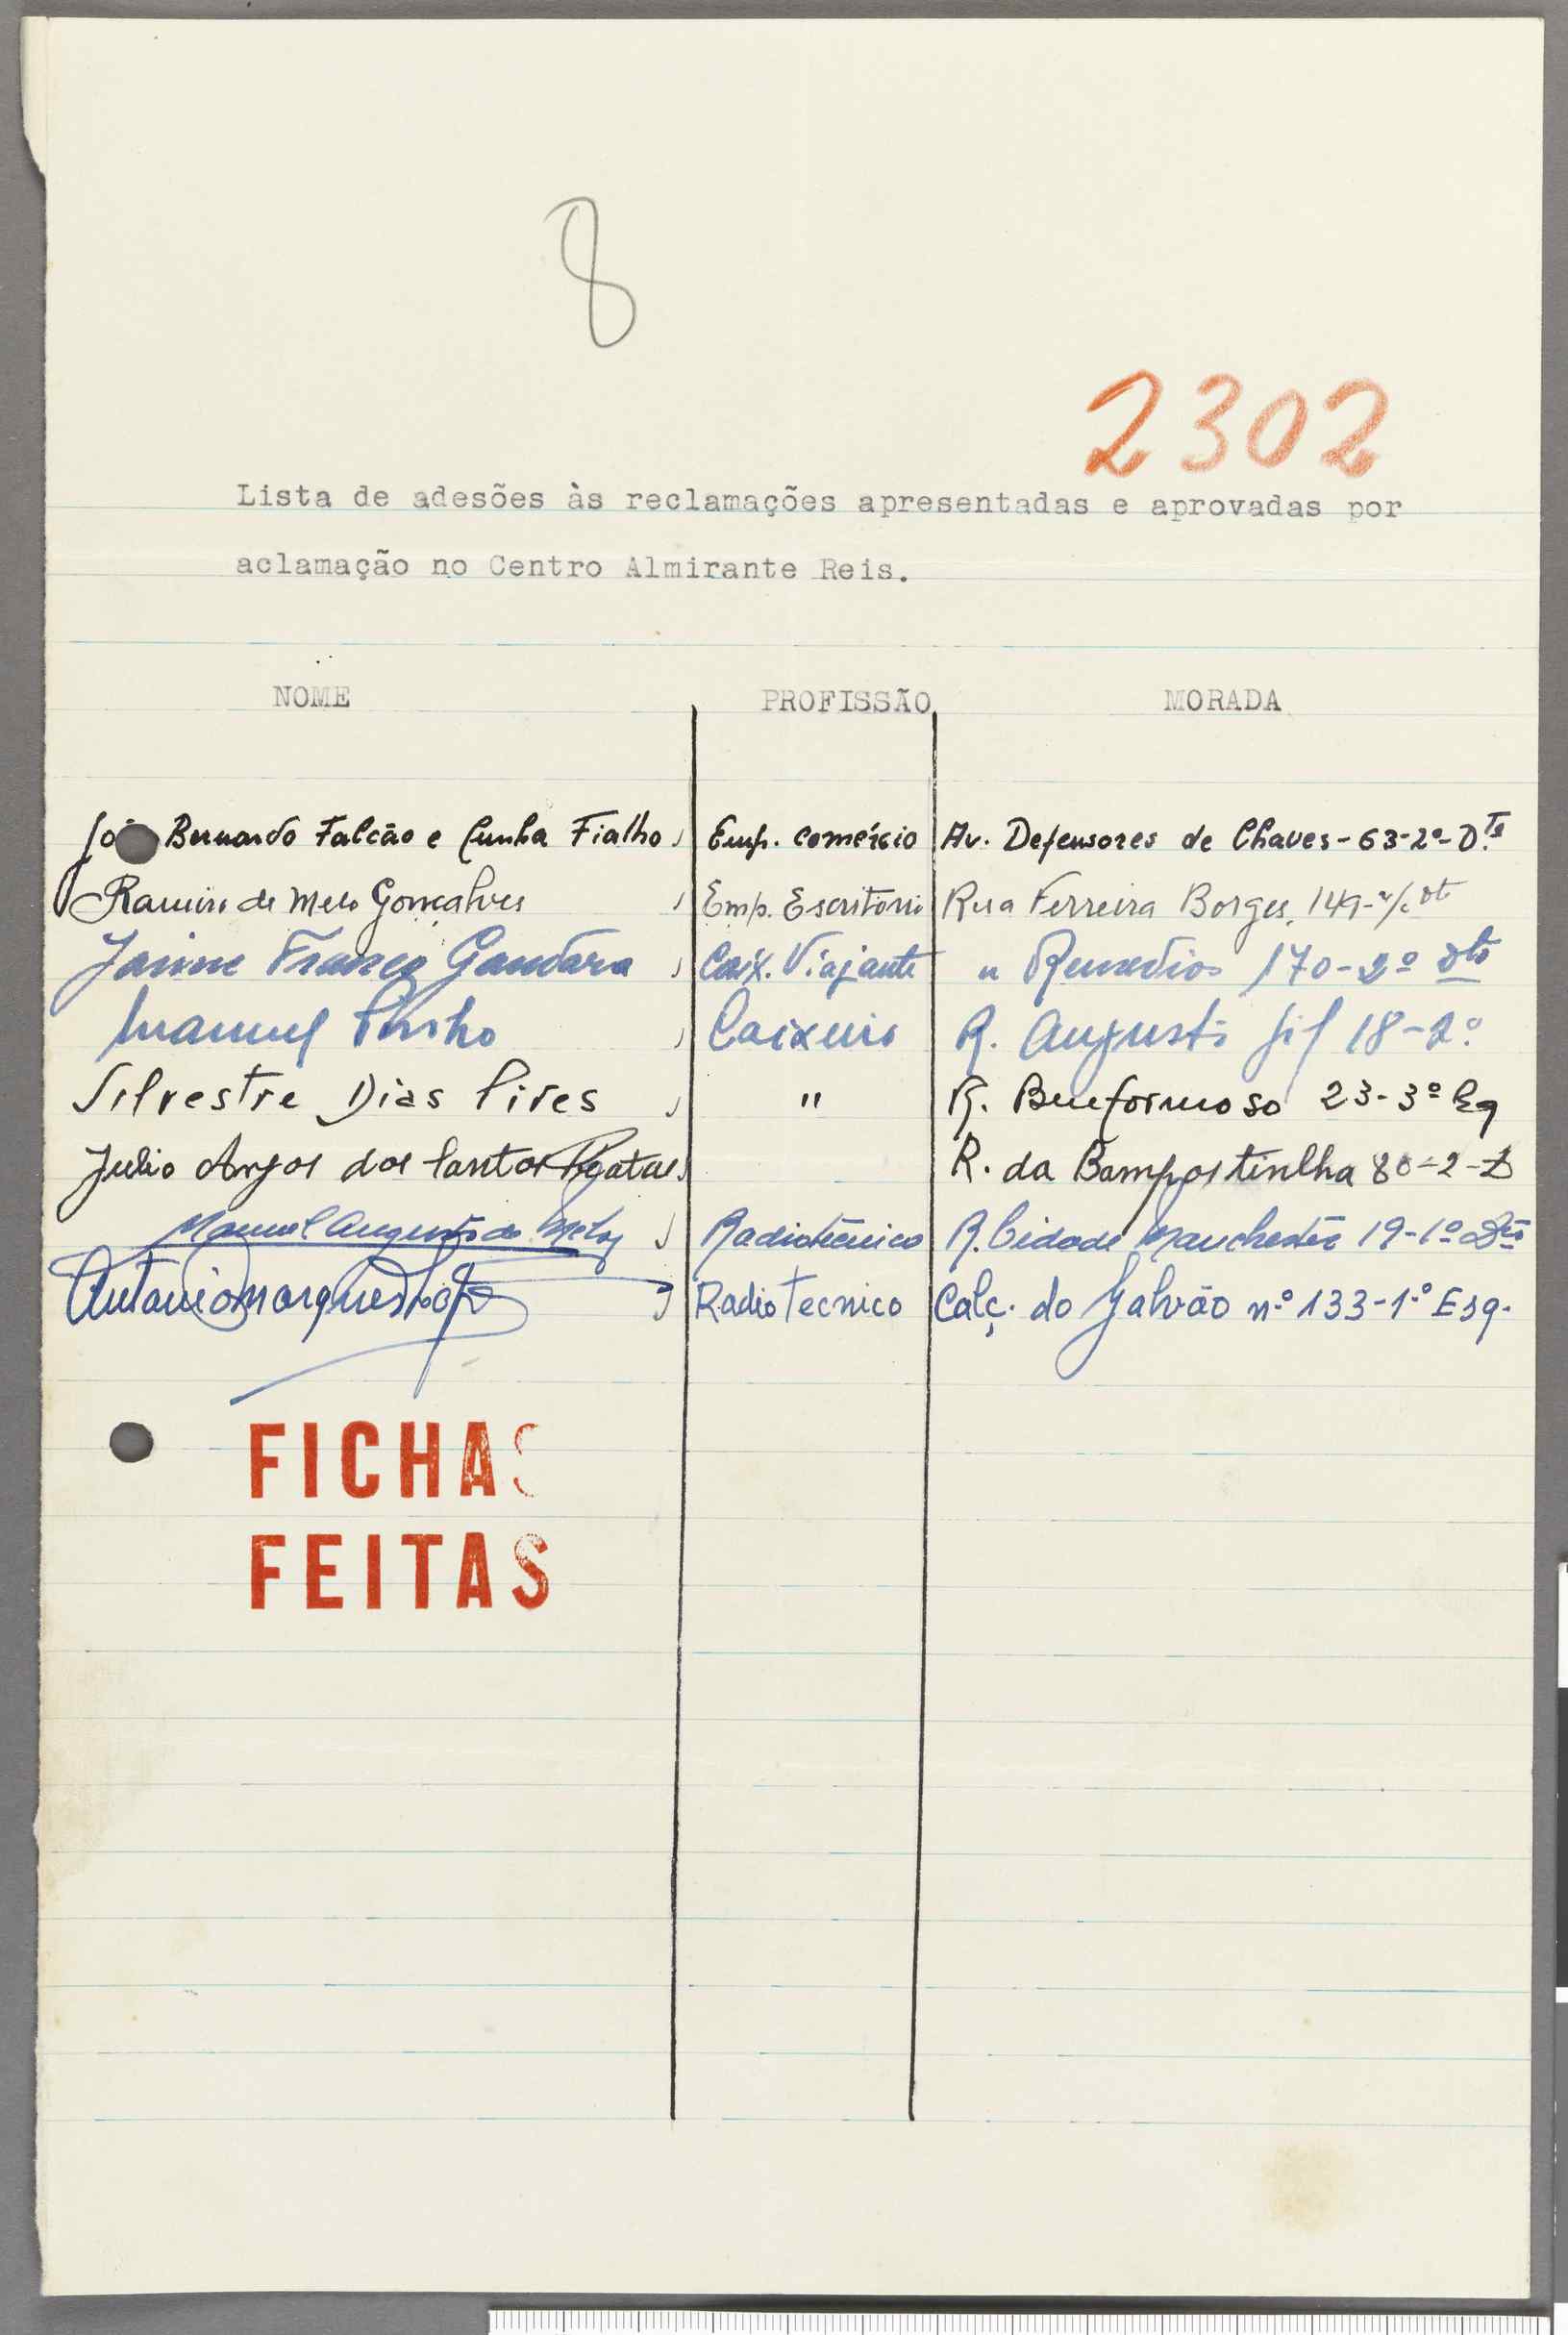 8
2302
Lista de adesões às reclamações apresentadas e aprovadas por
aclamação no Centro Almirante Reis.
NOME PROFISSÃO MORADA
Bernardo Falcão e Cunha Fialho Emp. comércio Av. Defensores de Chaves - 63-2º- Dtº
Ramiro de Melo Gonçalves Emp. Escritorio Rua Ferreira Borges, 149-r/c dt
Jaime Franco Gandara Caix. Viajante " Remedios 170-2º dto
Manuel Pinho Caixeiro R. Augusto Gil 18-2º
Silvestre Dias Pires " R. Benformoso 23-3º Eq
Julio Anjos dos Santos R. da Bempostinlha 80-2-D
Manuel Augusto de Melo Radiotécnico R. Cidade Manchester 19-1º Dto
Antonio Marques Radio Tecnico Calç. do Galvão n.º 133-1.º Esq.
FICHAS
FEITAS